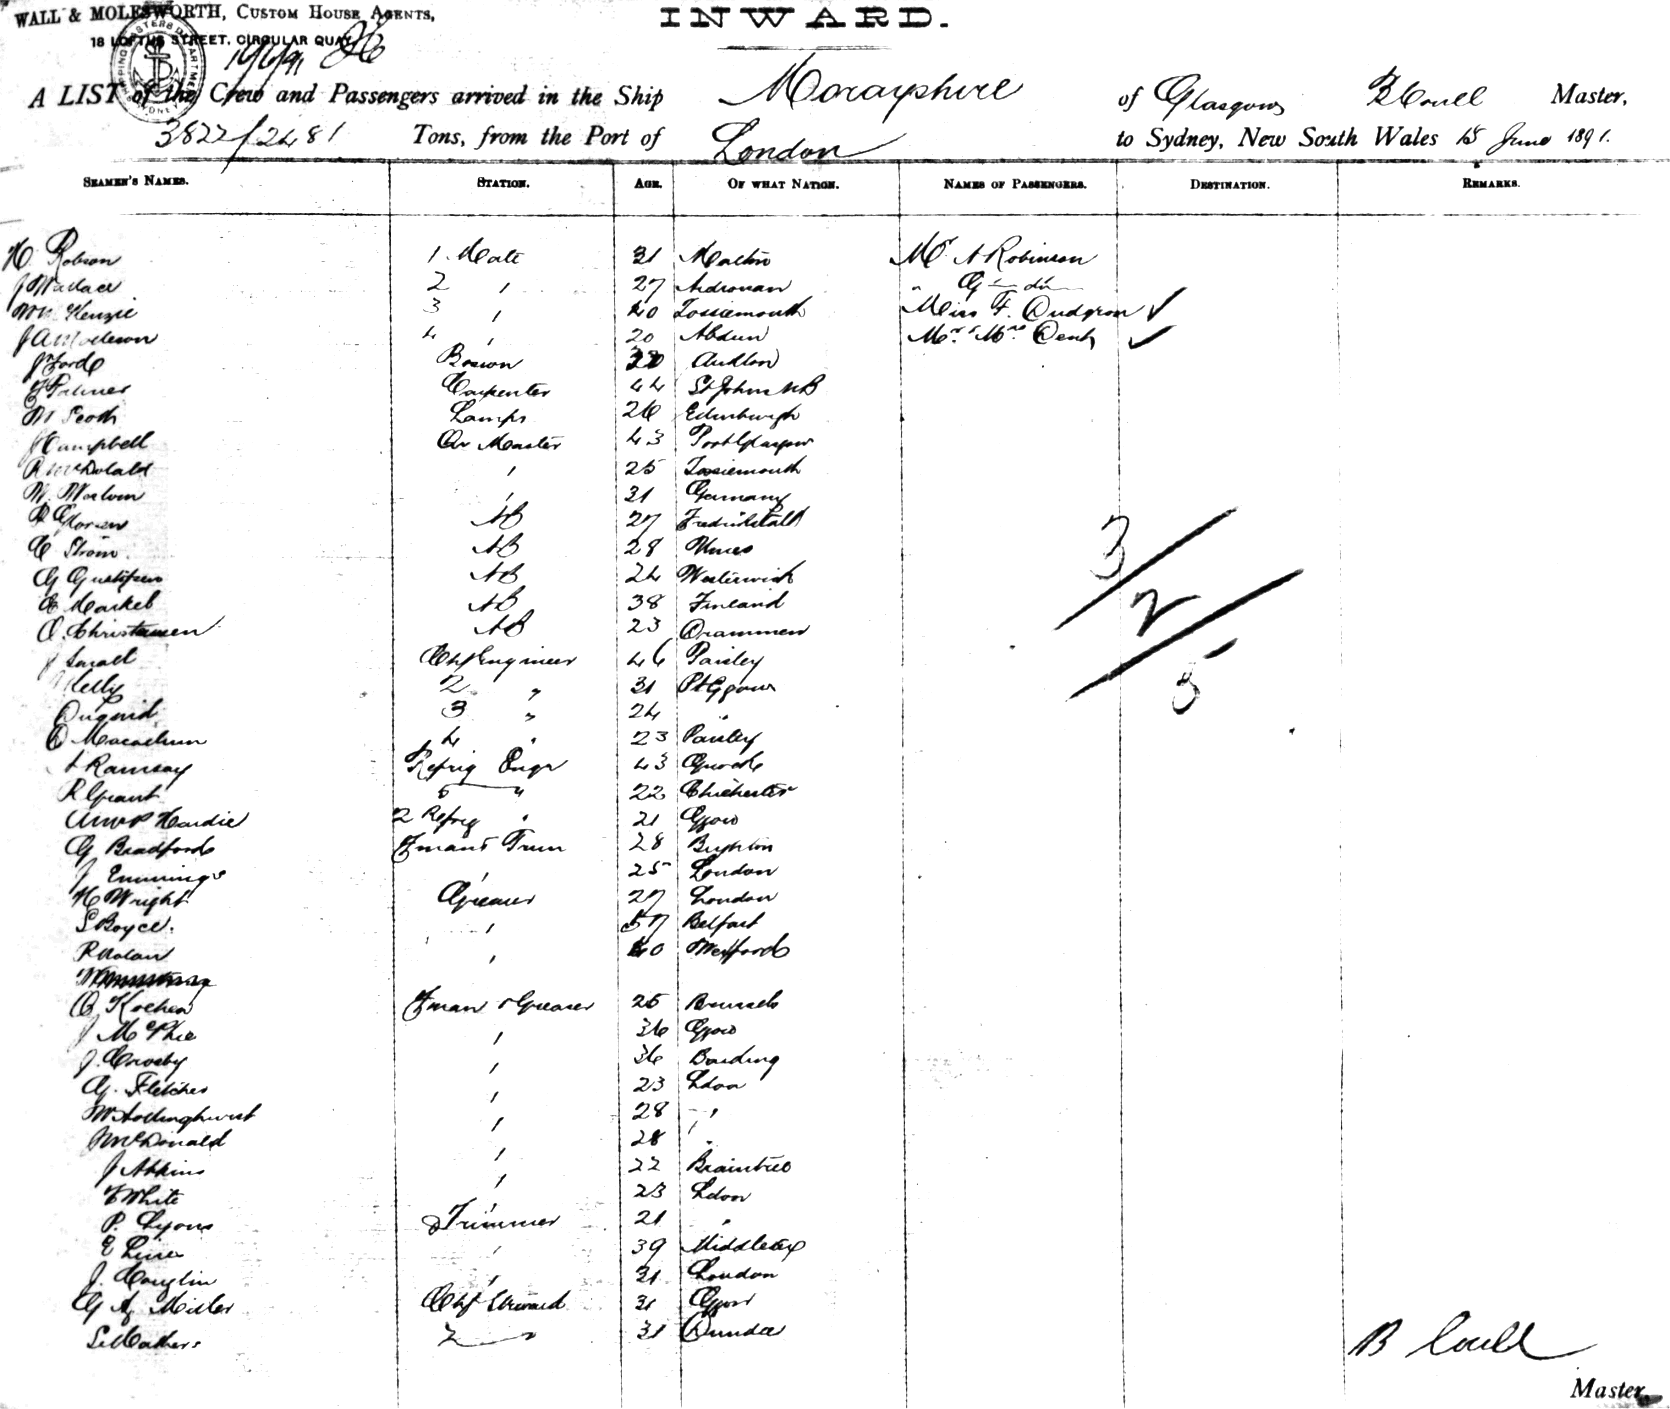 WALL & MOLESWORTH, CUSTOM HOUSE AGENTS,
18 LOFTUS STREET, CIRCULAR QUAY,
16/6/91
INWARD.
A LIST of the Crew and Passengers arrived in the Ship Morayshire of Glasgow Master,
3822/2481 Tons, from the Port of London to Sydney, New South Wales 15 June 1891.
SEAMEN'S NAMES. STATION. AGE. OF WHAT NATION. NAMES OF PASSENGERS. DESTINATION. REMARKS.
H. Robson 1 Mate 31 Malton Mr A Robinson
J Wallace 2 " 27 Ardrossan " G — do —
Kenzie 3 " 40 Lossiemouth Miss F.
4 " 20 Mr & Mrs Dent
J Ford Boswn
Palmer Carpenter 44 St Johns NB
Scott Lamps 26 Edinburgh
J Campbell Qr Master 43 Port Glasgow
R McDolald " 25 Lossiemouth
W. " 31 Germany
AB 27 Fredrikstall
C Strom AB 28 Umea
G Gustafsen AB 24 Westerwick
Markel AB 38 Finland
O. Christensen AB 23 Drammen
J Small Chf Engineer 46 Paisley
Kelly 2 " 31 Pt Ggow
Duguid 3 " 24 "
D 4 " 23 Paisley
A Ramsay Refrig Engr 43 Gurock
R Grant " 22 Chichester
Hardie 2 Refrig " 21 Ggow
G Bradford Fman & Trim 28 Brighton
J Emmings " 25 London
H Wright Greaser 27 London
S Boyce. " 57 Belfast
R Nolan " 40 Wexford
Kochen Fman & Greaser 25 Brussels
J McPhie " 36 Ggow
J. Crosby " 36
G. Fletcher " 23 Ldon
W Hollinghurst " 28 "
McDonald " 28 "
J Atkins " 22 Braintree
White " 23 Ldon
P. Lyons Trimmer 21 "
E " 39 Middlesex
J. Couglin " 21 London
G A Miller Chf Steward 31 Ggow
S Mathers 2 — " 31 Dundee
3/
2/
5
B
Master